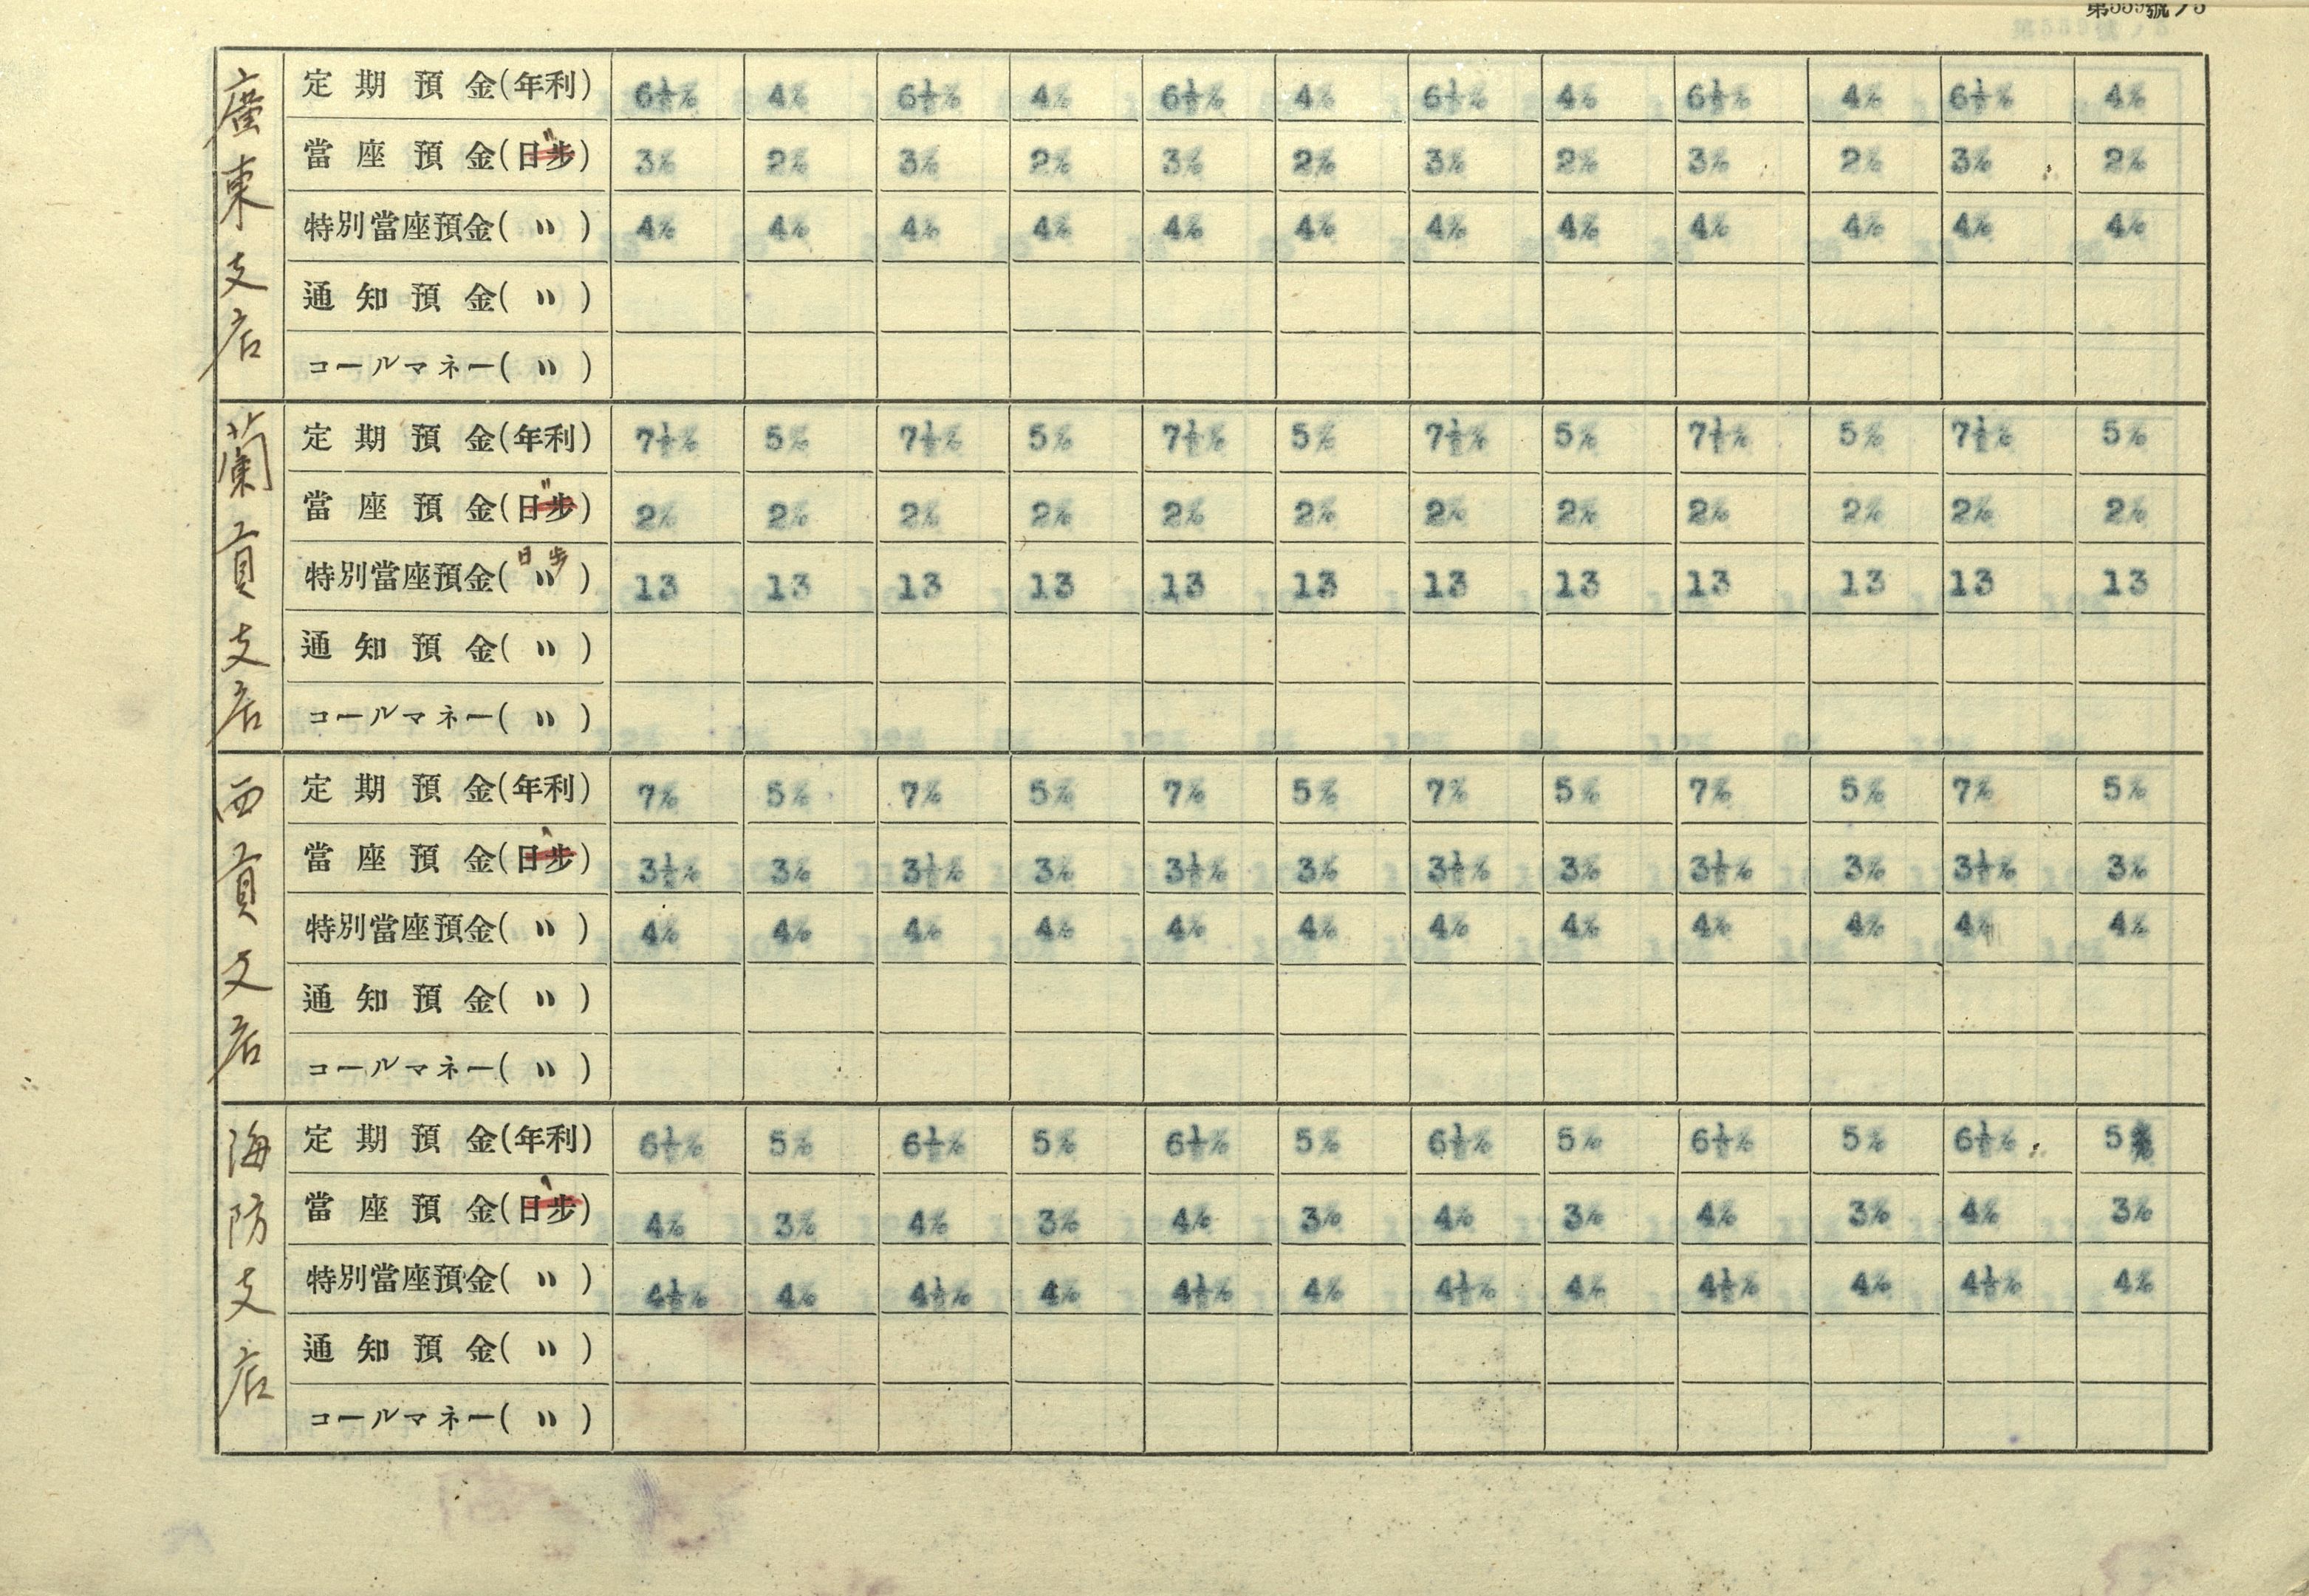 第559號ノ5
廣東支店
定期預金(年利) 6½% 4% 6½% 4% 6½% 4% 6½% 4% 6½% 4% 6½% 4%
當座預金(日步) 〃 3% 2% 3% 2% 3% 2% 3% 2% 3% 2% 3% 2%
特別當座預金(〃) 4% 4% 4% 4% 4% 4% 4% 4% 4% 4% 4% 4%
通知預金(〃)
コールマネー(〃)
蘭貢支店
定期預金(年利) 7½% 5% 7½% 5% 7½% 5% 7½% 5% 7½% 5% 7½% 5%
當座預金(日步) 〃 2% 2% 2% 2% 2% 2% 2% 2% 2% 2% 2% 2%
特別當座預金(〃) 日步 13 13 13 13 13 13 13 13 13 13 13 13
通知預金(〃)
コールマネー(〃)
西貢支店
定期預金(年利) 7% 5% 7% 5% 7% 5% 7% 5% 7% 5% 7% 5%
當座預金(日步) 3½% 3% 3½% 3% 3½% 3% 3½% 3% 3½% 3% 3½% 3%
特別當座預金(〃) 4% 4% 4% 4% 4% 4% 4% 4% 4% 4% 4% 4%
通知預金(〃)
コールマネー(〃)
海防支店
定期預金(年利) 6½% 5% 6½% 5% 6½% 5% 6½% 5% 6½% 5% 6½% 5%
當座預金(日步) 4% 3% 4% 3% 4% 3% 4% 3% 4% 3% 4% 3%
特別當座預金(〃) 4½% 4% 4½% 4% 4½% 4% 4½% 4% 4½% 4% 4½% 4%
通知預金(〃)
コールマネー(〃)